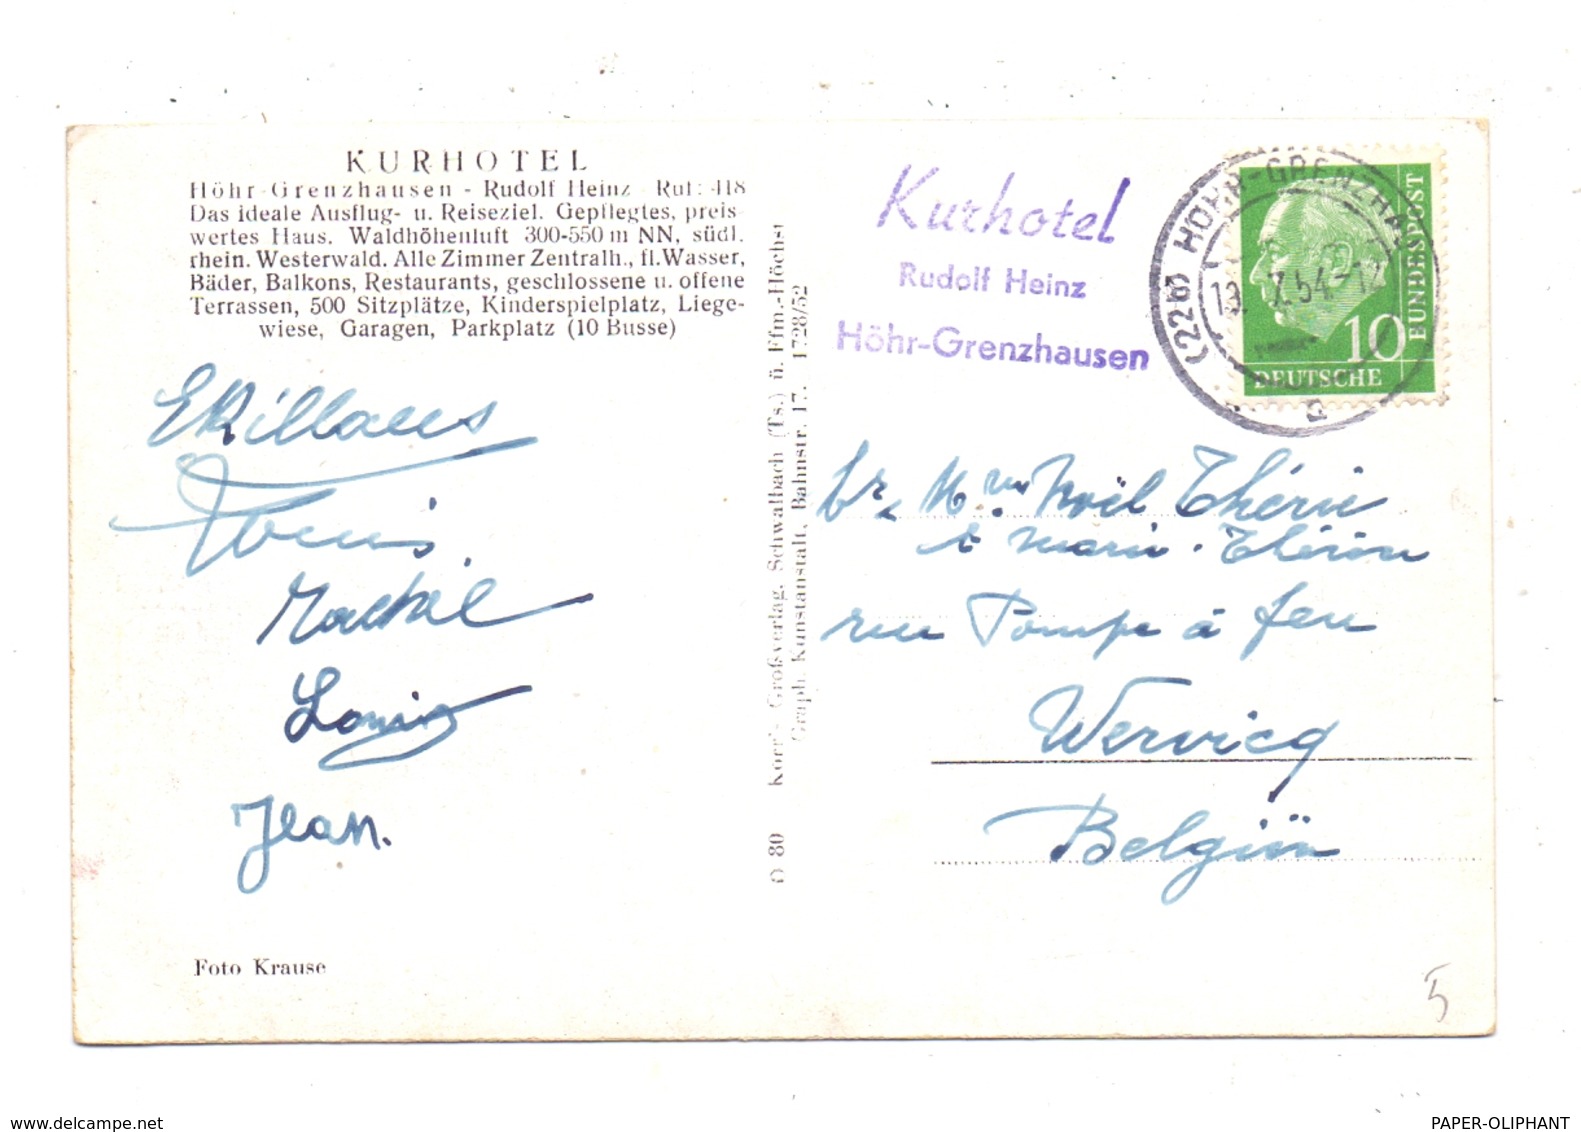 KURHOTEL
Höhr-Grenzhausen - Rudolf Heinz Ruf: 418
Das ideale Ausflug- u. Reiseziel. Gepflegtes, preis-
wertes Haus. Waldhöhenluft 300-550 m NN, südl.
rhein. Westerwald. Alle Zimmer Zentralh., fl. Wasser,
Bäder, Balkons, Restaurants, geschlossene u. offene
Terrassen, 500 Sitzplätze, Kinderspielplatz, Liege-
wiese, Garagen, Parkplatz (10 Busse)
Jean.
Foto Krause
O 80 Korr's Großverlag, Schwalbach (Ts.) ü. Ffm.-Höchst
Graph. Kunstanstalt, Bahnstr. 17. 1728/52
Kurhotel
Rudolf Heinz
Höhr-Grenzhausen
(22b) HÖHR-GRENZHAU
7.54.-12
a
10
DEUTSCHE
BUNDESPOST
Noël Thérin
Thérin
rue Pompe à feu
Wervicq
Belgïun
5
www.delcampe.net
PAPER-OLIPHANT